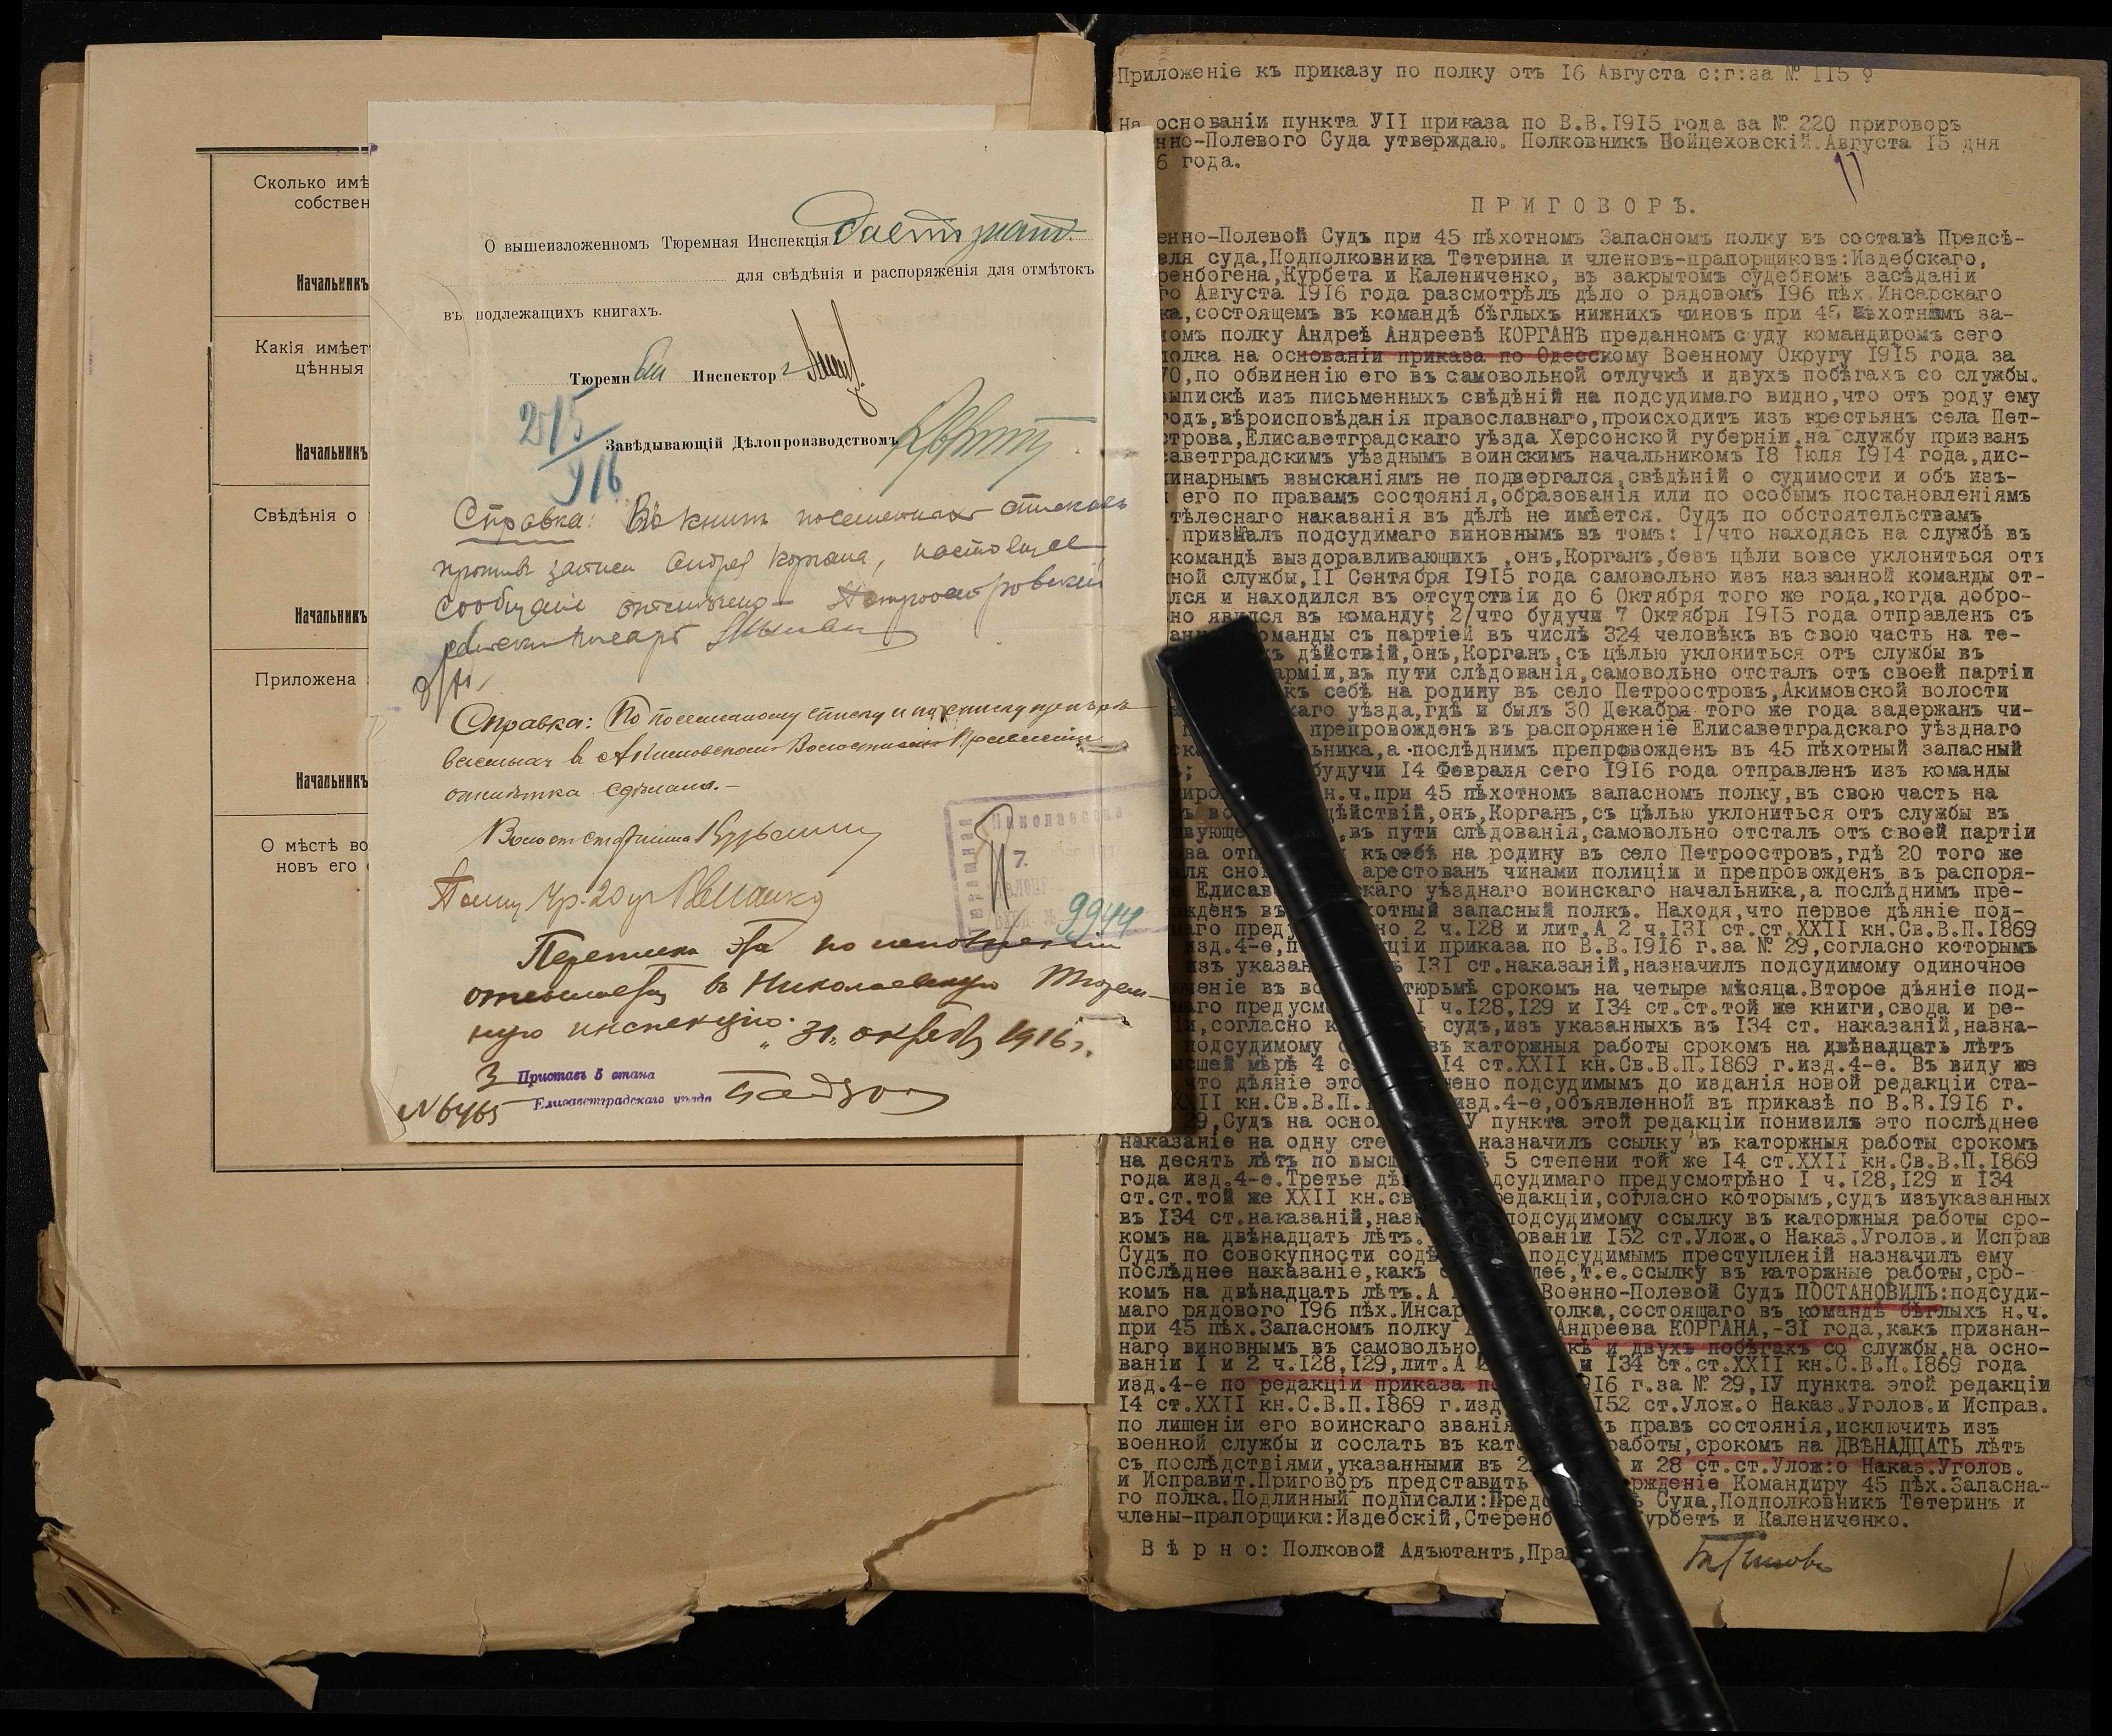 Сколько имѣ
собствен
Начальникъ
Какія имѣет
цѣнныя
Начальникъ
Свѣдѣнія о
Начальникъ
Приложена
Начальникъ
О мѣстѣ во
новъ его
О вышеизложенномъ Тюремная Инспекція даетъ знать
для свѣдѣнія и распоряженія для отмѣтокъ
въ подлежащихъ книгахъ.
Тюремный Инспекторъ
Завѣдывающій Дѣлопроизводствомъ
215/916
Справка: Въ книгѣ посемейныхъ списковъ
противъ записи Андрея Коргана, настоящее
сообщеніе отмѣчено Петроостровскій
сельскій писарь
Справка: По посемейному списку и по списку
въ Акимовскомъ Волостномъ Правленіи
отмѣтка сдѣлана.
Волост старшина
Николаевска
7.
9944
Переписка эта по исполненіи
отсылается въ Николаевскую Тюрем-
ную инспекцію. "31" октября 1916 г.
Приставъ 5 стана
Елисаветградскаго уѣзда
№ 6465
Приложеніе къ приказу по полку отъ 16 Августа с:г:за № 115
На основаніи пункта УІІ приказа по В.В.1915 года за № 220 приговоръ
нно-Полевого Суда утверждаю. Полковникъ Войцеховскій.Августа 15 дня
6 года.
П Р И Г О В О Р Ъ.
енно-Полевой Судъ при 45 пѣхотномъ Запасномъ полку въ составѣ Предсѣ-
еля суда,Подполковника Тетерина и членовъ-прапорщиковъ:Издебскаго,
ренбогена,Курбета и Калениченко, въ закрытомъ судебномъ засѣданіи
го Августа 1916 года разсмотрѣлъ дѣло о рядовомъ 196 пѣх.Инсарскаго
ка,состоящемъ въ командѣ бѣглыхъ нижнихъ чиновъ при 45 пѣхотномъ за-
номъ полку Андреѣ Андреевѣ КОРГАНѢ преданномъ суду командиромъ сего
полка на основаніи приказа по Одесскому Военному Округу 1915 года за
70,по обвиненію его въ самовольной отлучкѣ и двухъ побѣгахъ со службы.
ыпискѣ изъ письменныхъ свѣдѣній на подсудимаго видно,что отъ роду ему
годъ,вѣроисповѣданія православнаго,происходитъ изъ крестьянъ села Пет-
строва,Елисаветградскаго уѣзда Херсонской губерніи,на службу призванъ
саветградскимъ уѣзднымъ воинскимъ начальникомъ 18 Іюля 1914 года,дис-
линарнымъ взысканіямъ не подвергался,свѣдѣній о судимости и объ изъ-
его по правамъ состоянія,образованія или по особымъ постановленіямъ
тѣлеснаго наказанія въ дѣлѣ не имѣется. Судъ по обстоятельствамъ
призналъ подсудимаго виновнымъ въ томъ: I/что находясь на службѣ въ
командѣ выздоравливающихъ ,онъ,Корганъ,безъ цѣли вовсе уклониться отъ
ной службы,II Сентября 1915 года самовольно изъ названной команды от-
лся и находился въ отсутствіи до 6 Октября того же года,когда добро-
но явился въ команду; 2/что будучи 7 Октября 1915 года отправленъ съ
команды съ партіей въ числѣ 324 человѣкъ въ свою часть на те-
дѣйствій,онъ,Корганъ,съ цѣлью уклониться отъ службы въ
арміи,въ пути слѣдованія,самовольно отсталъ отъ своей партіи
къ себѣ на родину въ село Петроостровъ,Акимовской волости
каго уѣзда,гдѣ и былъ 30 Декабря того же года задержанъ чи-
препровожденъ въ распоряженіе Елисаветградскаго уѣзднаго
ьника,а послѣднимъ препровожденъ въ 45 пѣхотный запасный
будучи 14 Февраля сего 1916 года отправленъ изъ команды
н.ч.при 45 пѣхотномъ запасномъ полку,въ свою часть на
дѣйствій,онъ,Корганъ,съ цѣлью уклониться отъ службы въ
вующе ,въ пути слѣдованія,самовольно отсталъ отъ своей партіи
ова отп къ себѣ на родину въ село Петроостровъ,гдѣ 20 того же
ля сно арестованъ чинами полиціи и препровожденъ въ распоря-
Елисав скаго уѣзднаго воинскаго начальника,а послѣднимъ пре-
ожденъ въ хотный запасный полкъ. Находя,что первое дѣяніе под-
маго преду но 2 ч.128 и лит.А 2 ч.131 ст.ст.XXII кн.Св.В.П.1869
изд.4-е,п кціи приказа по В.В.1916 г.за № 29,согласно которымъ
изъ указан 131 ст.наказаній,назначилъ подсудимому одиночное
ченіе въ во тюрьмѣ срокомъ на четыре мѣсяца.Второе дѣяніе под-
маго предусм I ч.128,129 и 134 ст.ст.той же книги,свода и ре-
іи,согласно к судъ,изъ указанныхъ въ 134 ст. наказаній,назна-
подсудимому с въ каторжныя работы срокомъ на двѣнадцать лѣтъ
ысшей мѣрѣ 4 ст 14 ст.XXII кн.Св.В.П.1869 г.изд.4-е. Въ виду же
что дѣяніе это ено подсудимымъ до изданія новой редакціи ста-
XXII кн.Св.В.П.1 изд.4-е,объявленной въ приказѣ по В.В.1916 г.
29,Судъ на осно У пункта этой редакціи понизилъ это послѣднее
наказаніе на одну сте назначилъ ссылку въ каторжныя работы срокомъ
на десять лѣтъ по высш 5 степени той же 14 ст.XXII кн.Св.В.П.1869
года изд.4-е.Третье дѣ дсудимаго предусмотрѣно I ч.128,129 и 134
ст.ст.той же XXII кн.св едакціи,согласно которымъ,судъ изъуказанныхъ
въ 134 ст.наказаній,назн подсудимому ссылку въ каторжныя работы сро-
комъ на двѣнадцать лѣтъ. ованіи 152 ст.Улож.о Наказ.Уголов.и Исправ
Судъ по совокупности содѣ подсудимымъ преступленій назначилъ ему
послѣднее наказаніе,какъ с шее,т.е.ссылку въ каторжные работы,сро-
комъ на двѣнадцать лѣтъ.А Военно-Полевой Судъ ПОСТАНОВИЛЪ:подсуди-
маго рядового 196 пѣх.Инсар полка,состоящаго въ командѣ бѣглыхъ н.ч.
при 45 пѣх.Запасномъ полку Андреева КОРГАНА,-31 года,какъ признан-
наго виновнымъ въ самовольно кѣ и двухъ побѣгахъ со службы,на осно-
ваніи I и 2 ч.128,129,лит.А 2 и 134 ст.ст.XXII кн.С.В.П.1869 года
изд.4-е по редакціи приказа по 916 г.за № 29,IУ пункта этой редакціи
14 ст.XXII кн.С.В.П.1869 г.изд 152 ст.Улож.о Наказ.Уголов.и Исправ.
по лишеніи его воинскаго званія ъ правъ состоянія,исключить изъ
военной службы и сослать въ кат работы,срокомъ на ДВѢНАДЦАТЬ лѣтъ
съ послѣдствіями,указанными въ 2 и 28 ст.ст.Улож:о Наказ.Уголов.
и Исправит.Приговоръ представить ржденіе Командиру 45 пѣх.Запасна-
го полка.Подлинный подписали:Предс ь Суда,Подполковникъ Тетеринъ и
члены-прапорщики:Издебскій,Стеренб урбетъ и Калениченко.
В ѣ р н о: Полковой Адъютантъ,Пра